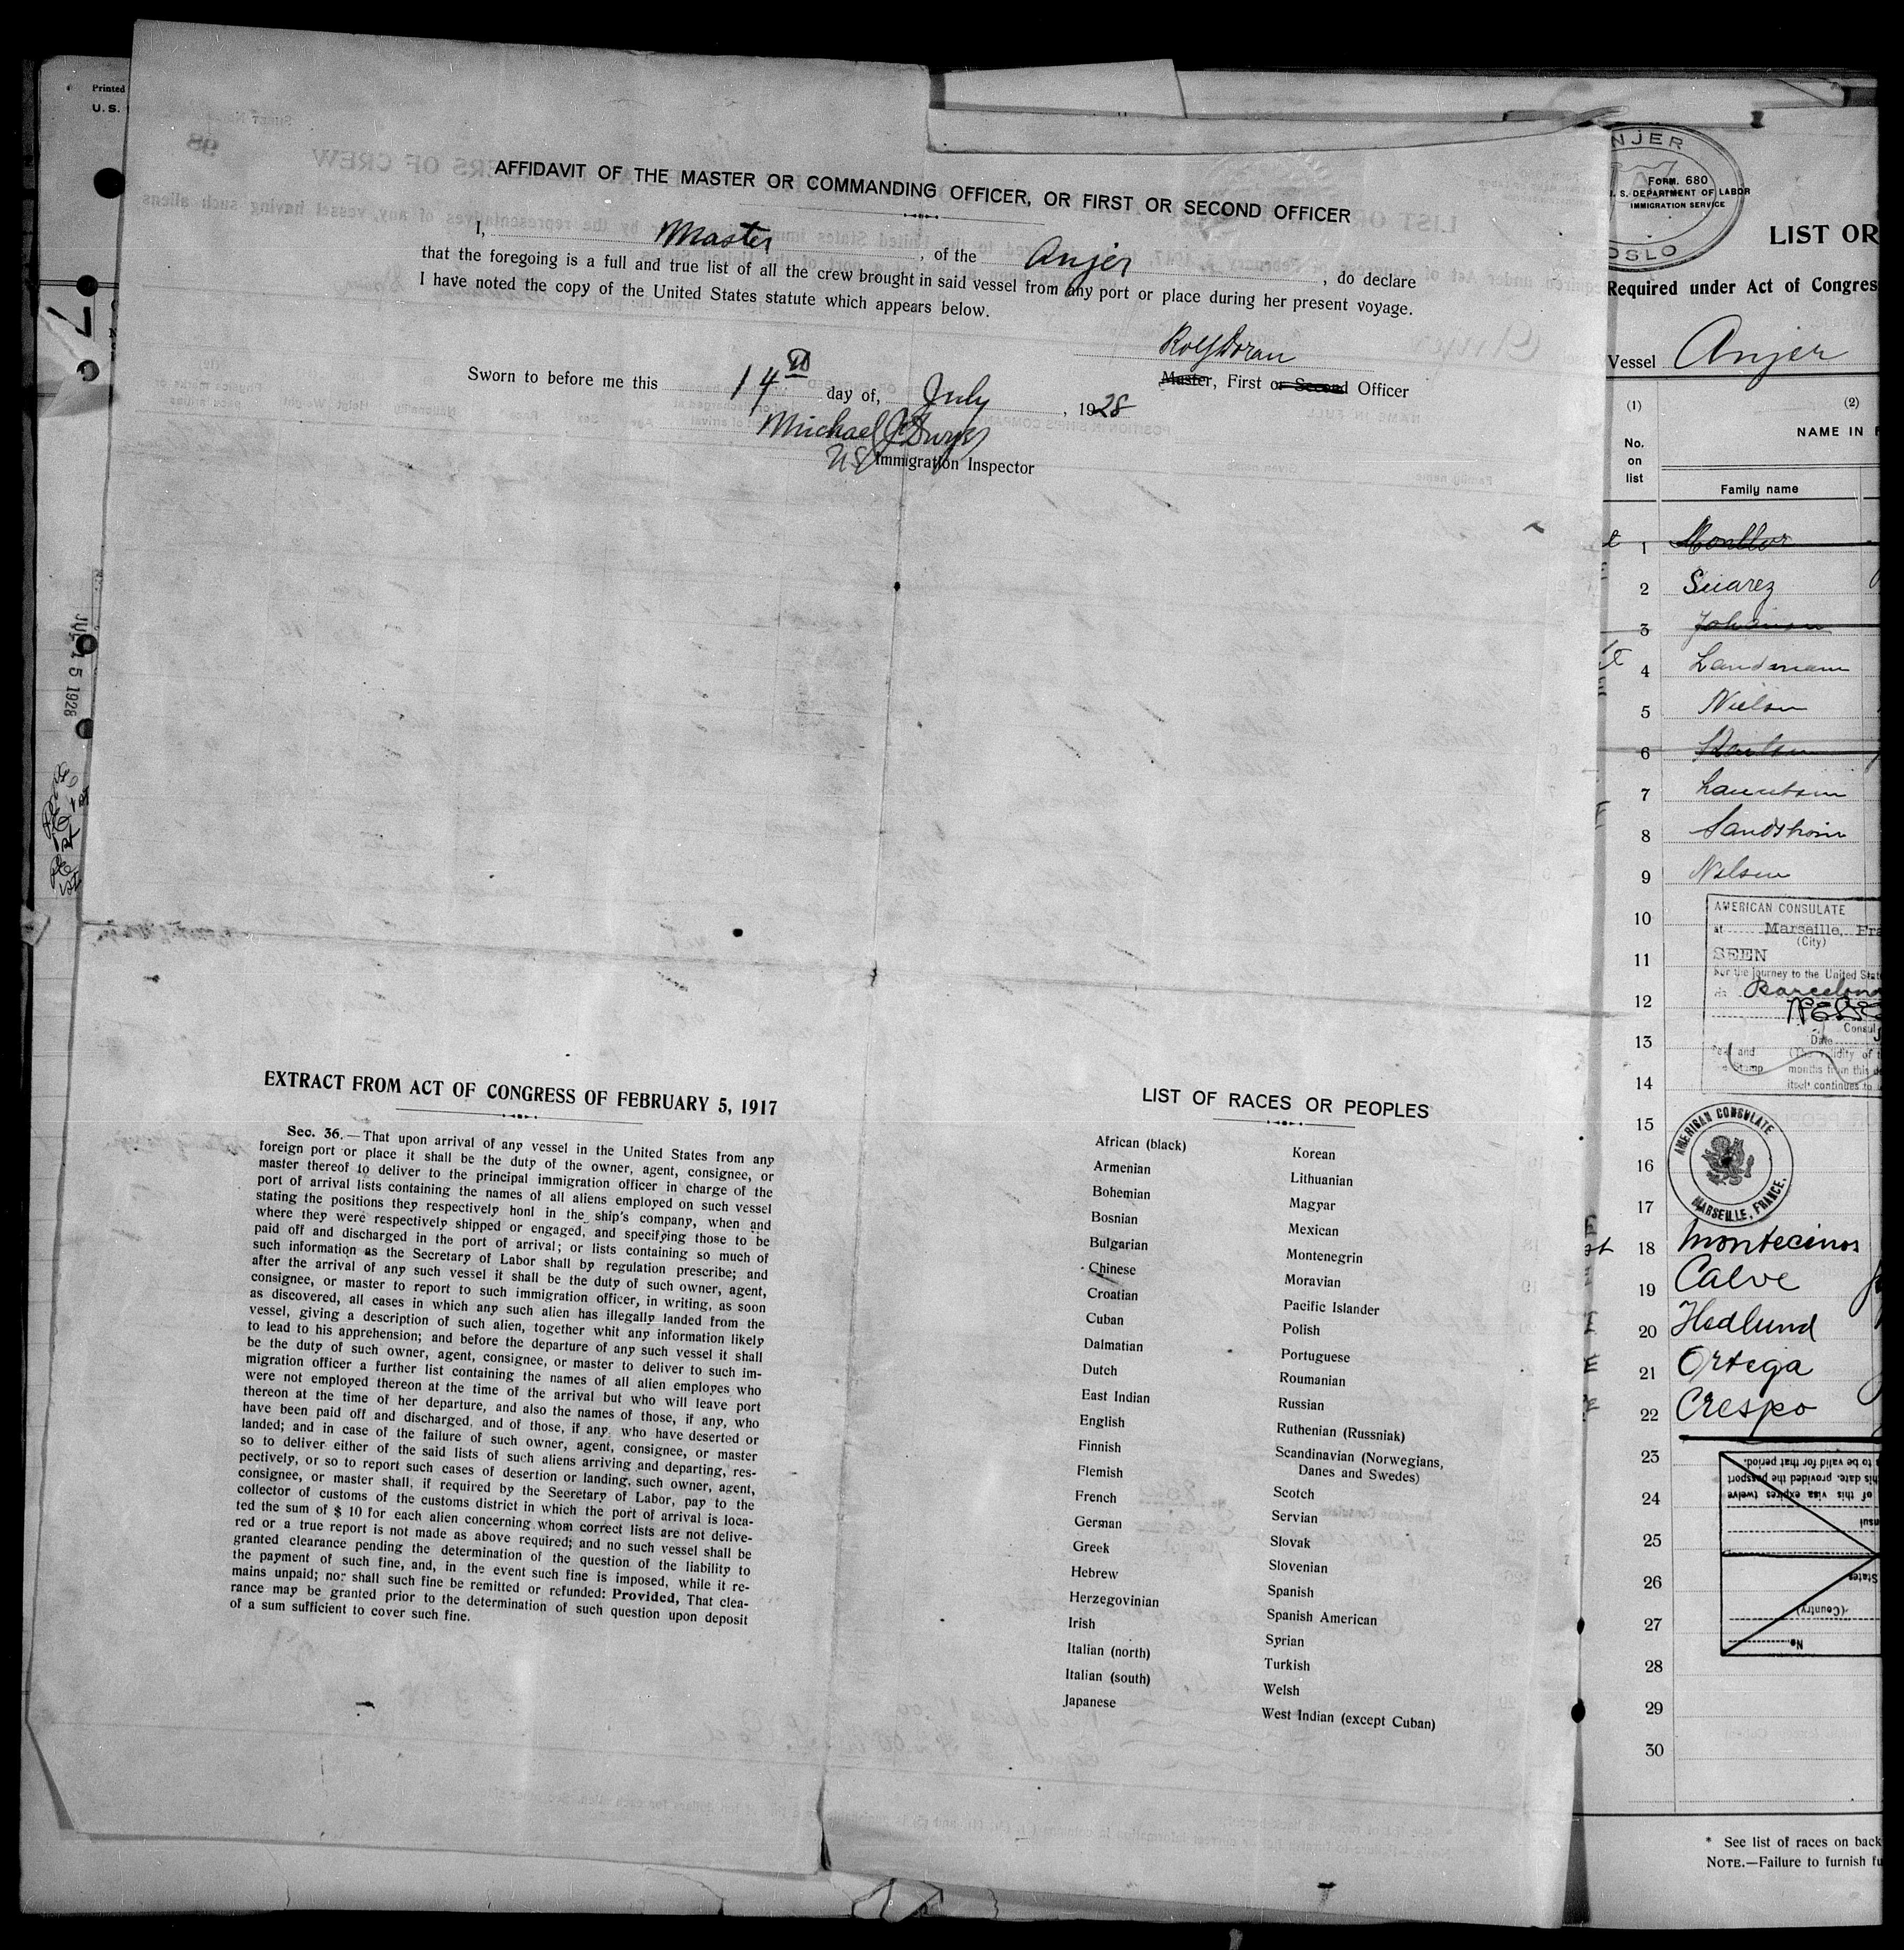 Printed
U. S.
7
JUL 15 1928
AFFIDAVIT OF THE MASTER OR COMMANDING OFFICER, OR FIRST OR SECOND OFFICER
I, Master, of the Anjer, do declare
that the foregoing is a full and true list of all the crew brought in said vessel from any port or place during her present voyage.
I have noted the copy of the United States statute which appears below.
Master, First or Second Officer
Sworn to before me this 14th day of, July, 1928
Michael J
US Immigration Inspector
EXTRACT FROM ACT OF CONGRESS OF FEBRUARY 5, 1917
Sec. 36.—That upon arrival of any vessel in the United States from any
foreign port or place it shall be the duty of the owner, agent, consignee, or
master thereof to deliver to the principal immigration officer in charge of the
port of arrival lists containing the names of all aliens employed on such vessel
stating the positions they respectively honl in the ship's company, when and
where they were respectively shipped or engaged, and specifying those to be
paid off and discharged in the port of arrival; or lists containing so much of
such information as the Secretary of Labor shall by regulation prescribe; and
after the arrival of any such vessel it shall be the duty of such owner, agent,
consignee, or master to report to such immigration officer, in writing, as soon
as discovered, all cases in which any such alien has illegally landed from the
vessel, giving a description of such alien, together whit any information likely
to lead to his apprehension; and before the departure of any such vessel it shall
be the duty of such owner, agent, consignee, or master to deliver to such im-
migration officer a further list containing the names of all alien employes who
were not employed thereon at the time of the arrival but who will leave port
thereon at the time of her departure, and also the names of those, if any, who
have been paid off and discharged, and of those, if any, who have deserted or
landed; and in case of the failure of such owner, agent, consignee, or master
so to deliver either of the said lists of such aliens arriving and departing, res-
pectively, or so to report such cases of desertion or landing, such owner, agent,
consignee, or master shall, if required by the Secretary of Labor, pay to the
collector of customs of the customs district in which the port of arrival is loca-
ted the sum of $ 10 for each alien concerning whom correct lists are not delive-
red or a true report is not made as above required; and no such vessel shall be
granted clearance pending the determination of the question of the liability to
the payment of such fine, and, in the event such fine is imposed, while it re-
mains unpaid; nor shall such fine be remitted or refunded: Provided, That clea-
rance may be granted prior to the determination of such question upon deposit
of a sum sufficient to cover such fine.
LIST OF RACES OR PEOPLES
African (black)
Armenian
Bohemian
Bosnian
Bulgarian
Chinese
Croatian
Cuban
Dalmatian
Dutch
East Indian
English
Finnish
Flemish
French
German
Greek
Hebrew
Herzegovinian
Irish
Italian (north)
Italian (south)
Japanese
Korean
Lithuanian
Magyar
Mexican
Montenegrin
Moravian
Pacific Islander
Polish
Portuguese
Roumanian
Russian
Ruthenian (Russniak)
Scandinavian (Norwegians,
Danes and Swedes)
Scotch
Servian
Slovak
Slovenian
Spanish
Spanish American
Syrian
Turkish
Welsh
West Indian (except Cuban)
NJER
OSLO
FORM. 680
S. DEPARTMENT OF LABOR
IMMIGRATION SERVICE
LIST OR
Required under Act of Congres
Vessel Anjer
(1) (2)
No. on list
NAME IN F
Family name
1
2 Suarez
3
4 Landmann
5 Nielsen
6
7
8
9 Nilsen
10
11
12
13
14
15
16
17
18 Montecinos
19 Calve
20 Hedlund
21 Ortega
22 Crespo
23
24
25
26
27
28
29
30
AMERICAN CONSULATE
at Marseille, Fra
(City)
SEEN
For the journey to the United Stat
via Barcelona
Consul
Date
Seal and (The validity of
Stamp months from this da
itself continues to
AMERICAN CONSULATE
MARSEILLE, FRANCE.
to be valid for that period.
his date, provided the passport
of this visa expires twelve
nsul
States
(Country)
No.
* See list of races on back
NOTE.—Failure to furnish fu